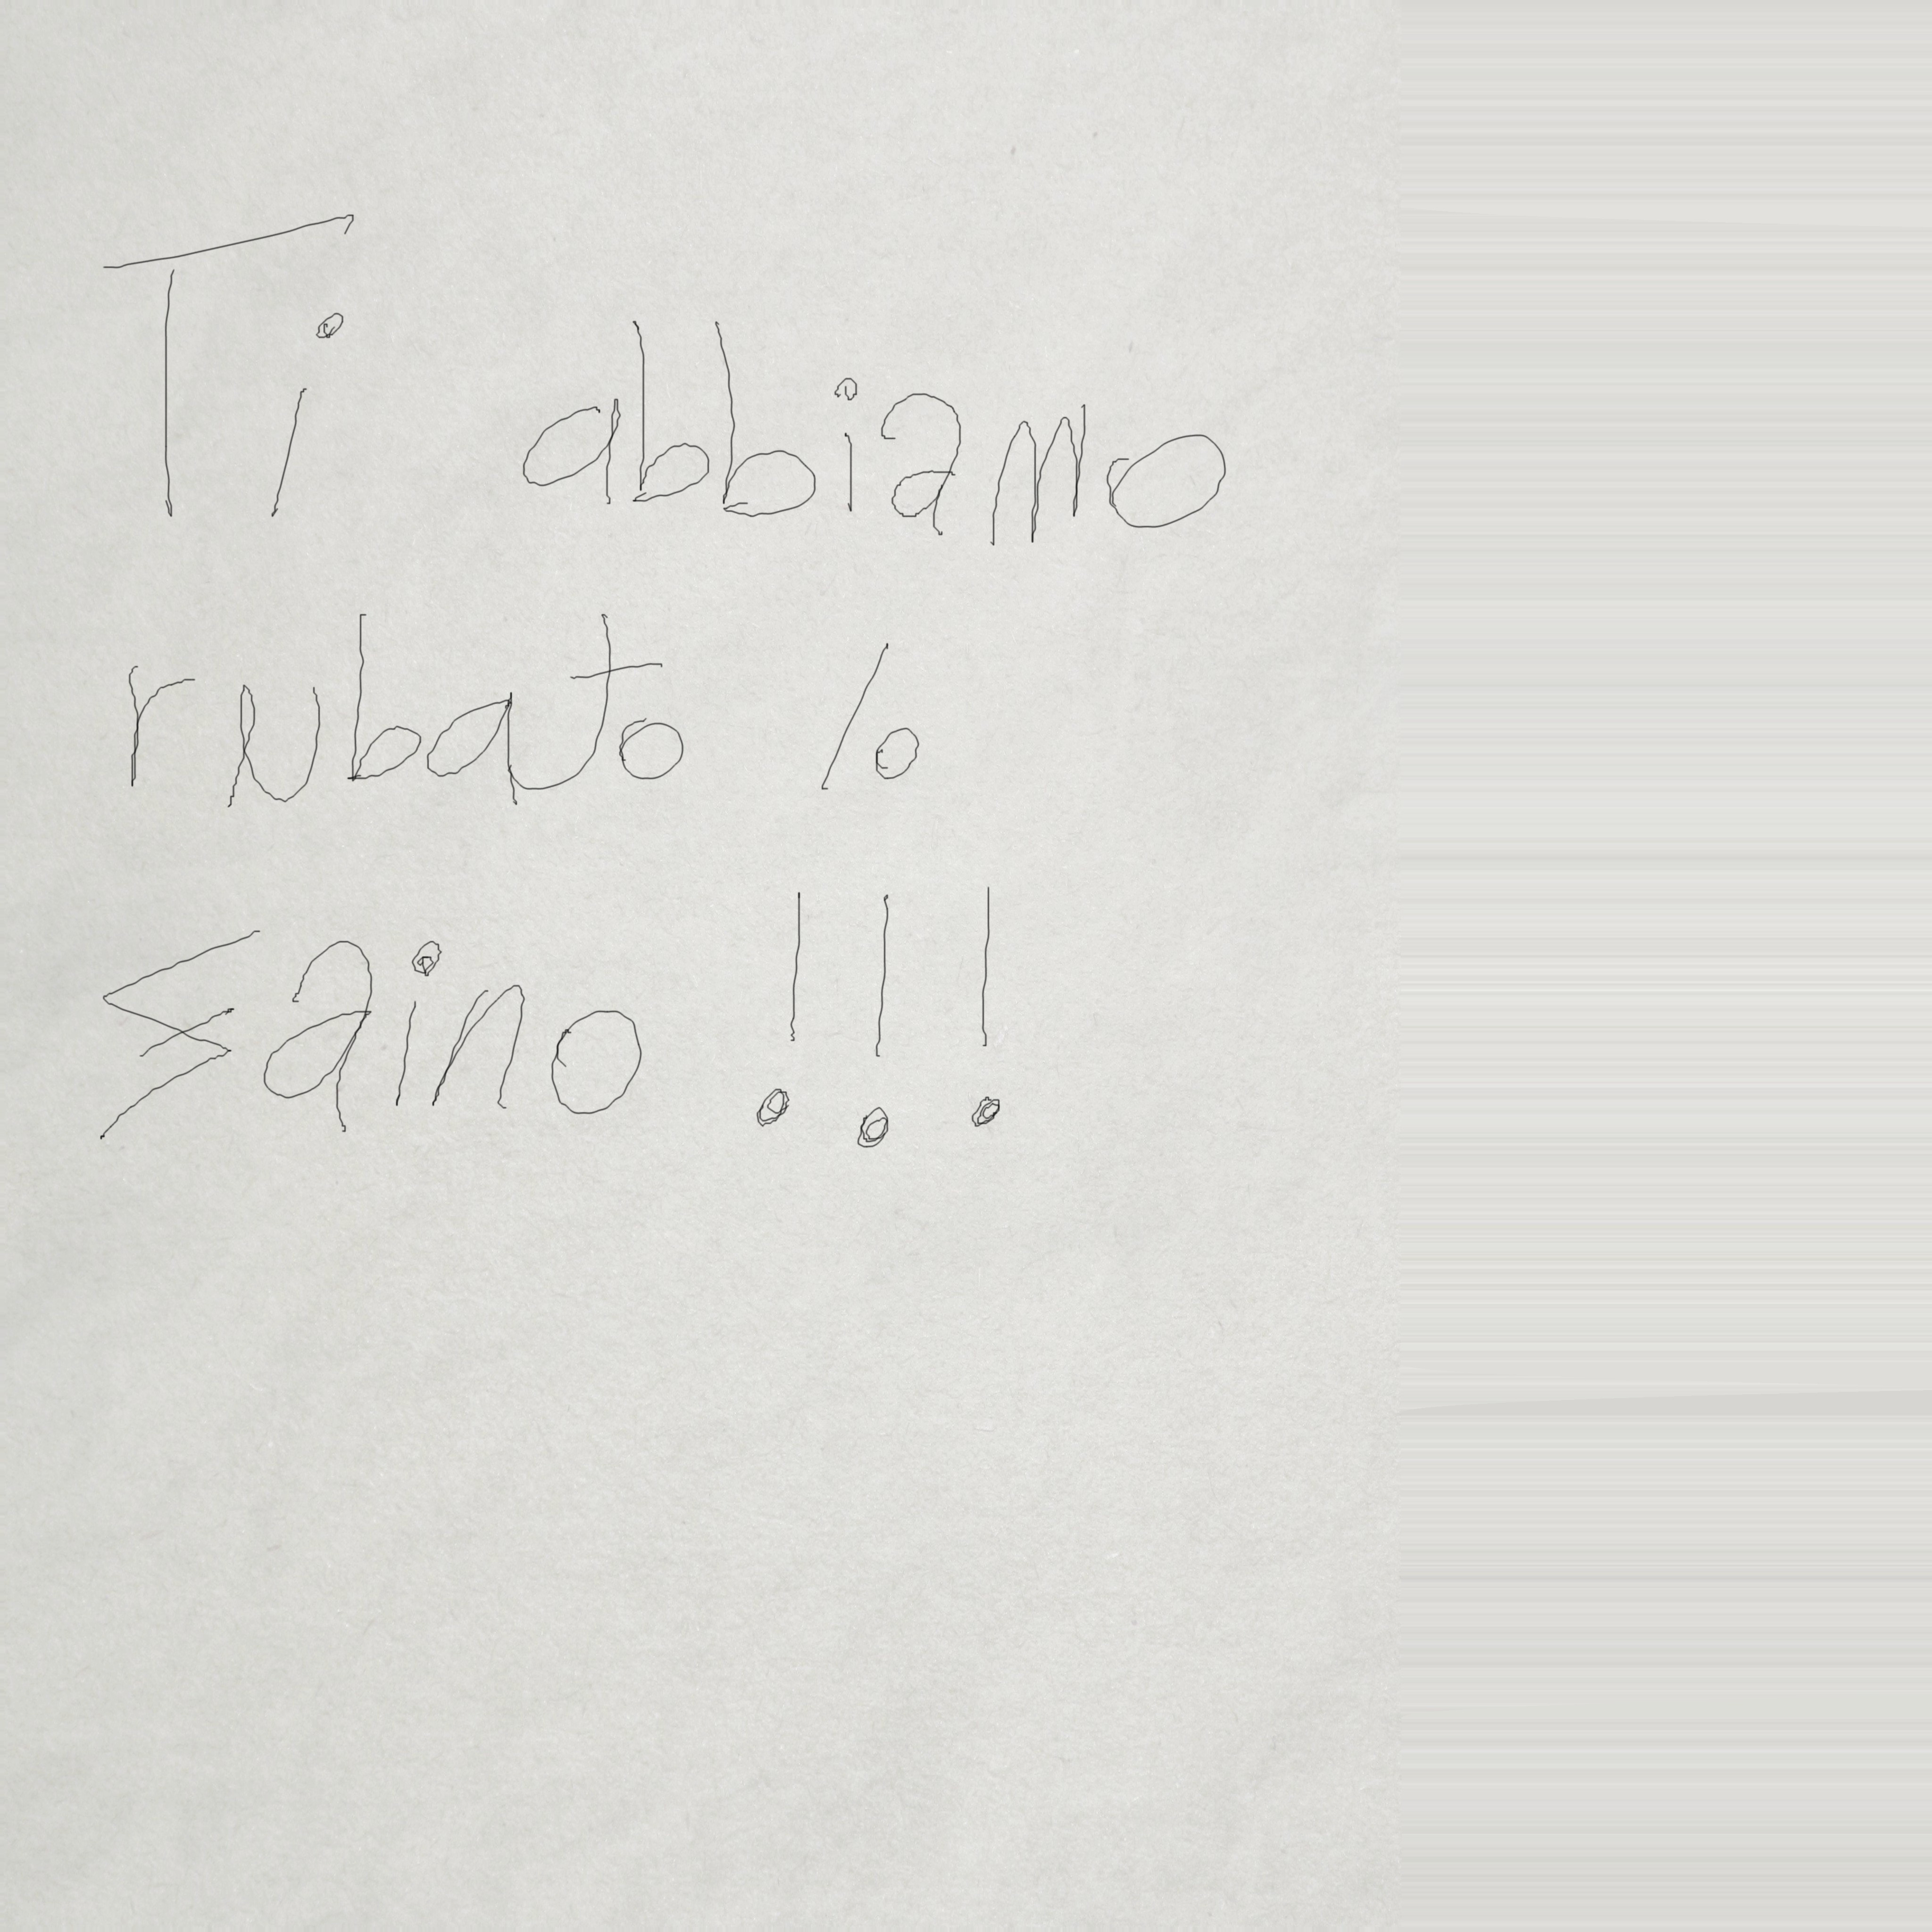 Ti abbiamo
rubato lo
zaino !!!